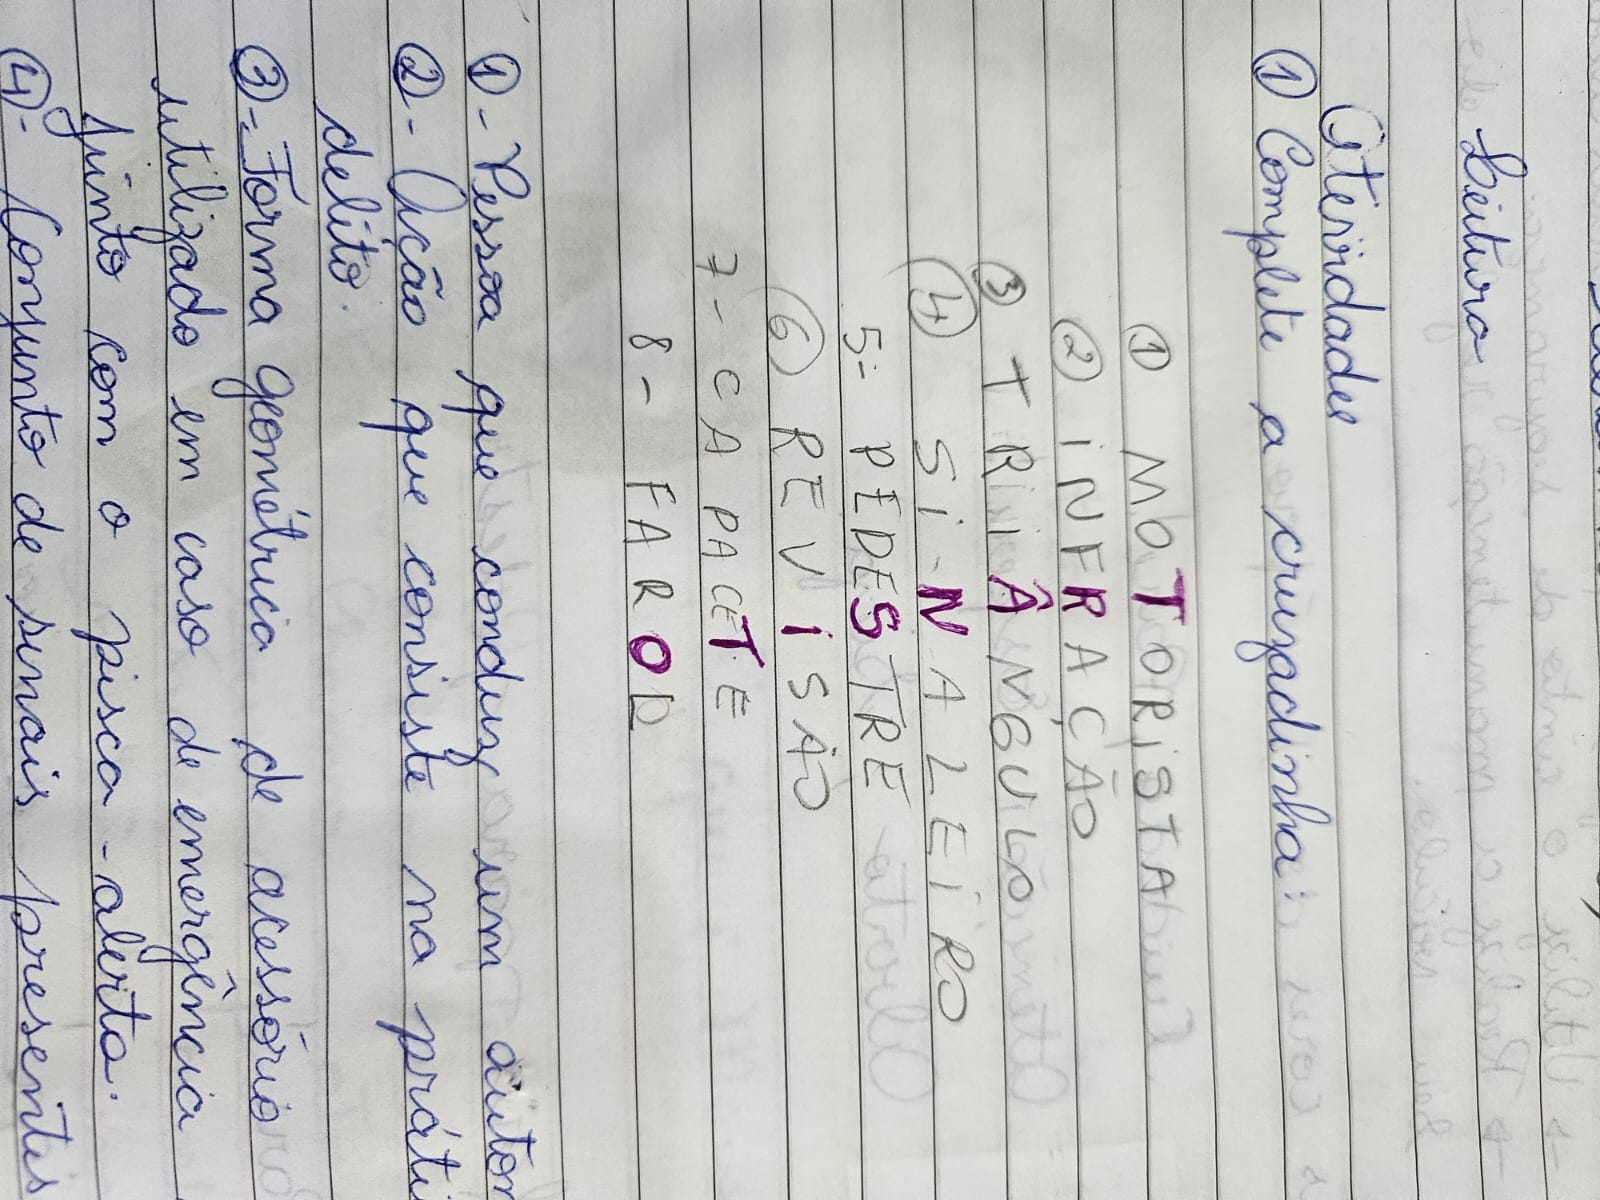 Leitura
Atividades
① Complete a cruzadinha:
① MOTORISTA
② INFRAÇÃO
③ TRIÂNGULO
④ SINALEIRO
5- PEDESTRE
⑥ REVISÃO
7- CAPACETE
8- FAROL
①- Pessoa que conduz um autom
②- Ação que consiste na práti
delito.
③- Forma geométrica de acessório
utilizado em caso de emergência
junto com o pisca-alerta.
④- Conjunto de sinais presentes